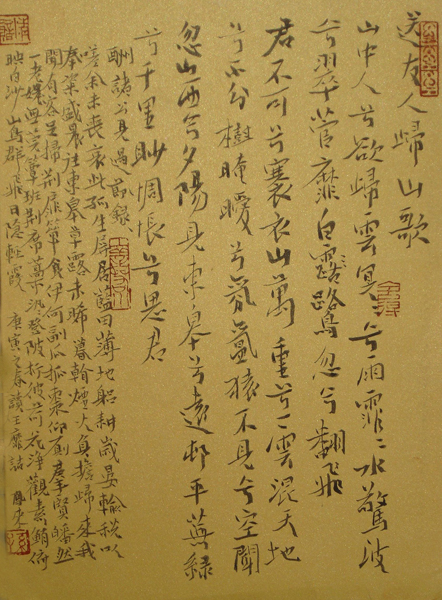 送友人歸山歌
山中人兮欲歸雲冥〻兮雨霏〻水驚波
兮翠菅靡白露鷺忽兮翻飛
君不可兮褰衣山萬重兮一雲混天地
兮不分樹晻曖兮氛氳猿不見兮空聞
忽山西兮夕陽見東皋兮遠邨平蕪綠
兮千里眇惆悵兮思君
酬諸公見過節錄
嗟余未喪哀此孤生屏居藍田薄地躬耕歲晏輸稅以
奉粢盛晨往東皋草露未晞暮看煙火負擔歸來我
聞有客足掃荊扉簞食伊何副瓜抓棗仰廁羣賢皤然
一老媿無莞簟班荊席藁汎〻登陂折彼荷花淨觀素鮪俯
映白沙山鳥群飛日隱輕霞 庚寅之春讀王靡詰